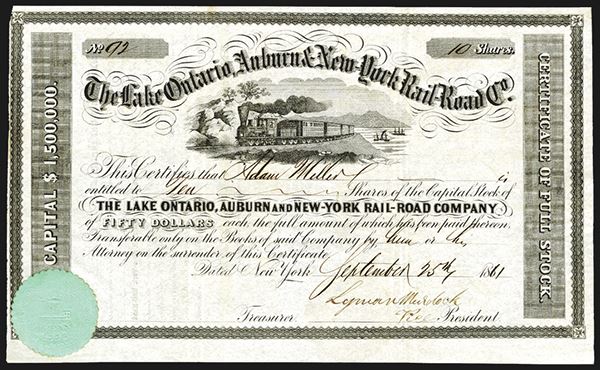 No 92
10 Shares.
The Lake Ontario, Auburn & New-York Rail-Road Co.
CAPITAL $1,500,000.
CERTIFICATE OF FULL STOCK
This Certifies that Adam Miller is
entitled to Ten Shares of the Capital Stock of
THE LAKE ONTARIO, AUBURN AND NEW-YORK RAIL-ROAD COMPANY
of FIFTY DOLLARS each, the full amount of which has been paid thereon,
Transferable only on the Books of said Company by him or his
Attorney on the surrender of this Certificate
Dated New York September 25th 1861
Lyman Murdock
Treasurer. Vice President